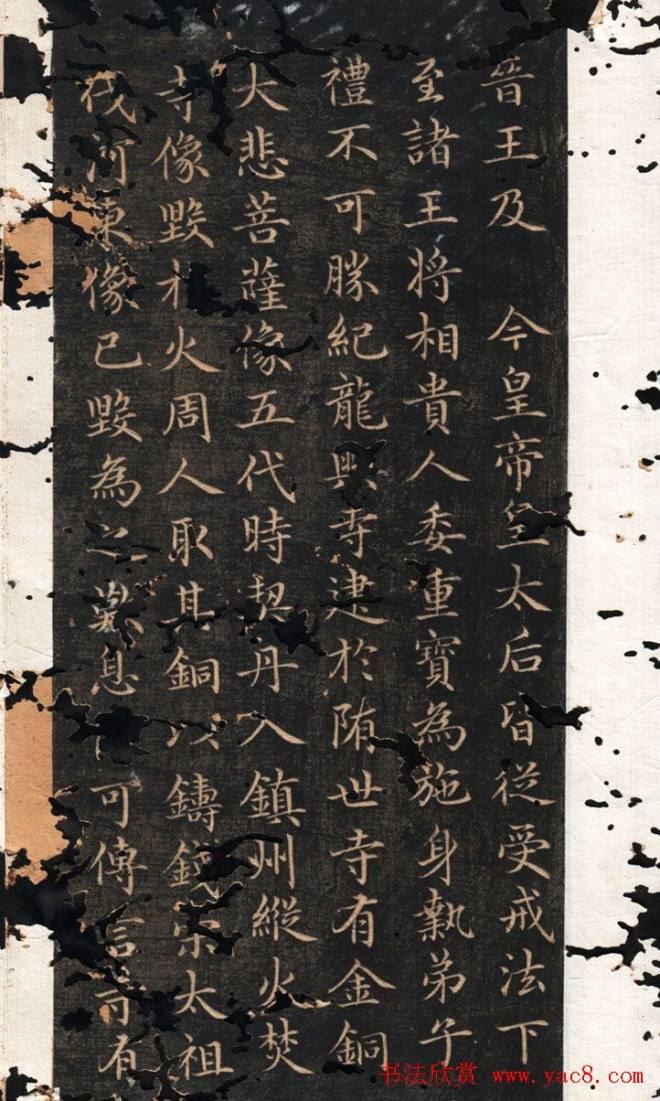 晉王及 今皇帝皇太后皆從受戒法下
至諸王將相貴人委重寶為施身執弟子
禮不可勝紀龍興寺建於陏世寺有金銅
大悲菩薩像五代時契丹入鎮州縱火焚
寺像毀於火周人取其銅以鑄錢宋太祖
伐河東像已毀為之歎息可傳言寺有
书法欣赏 www.yac8.com